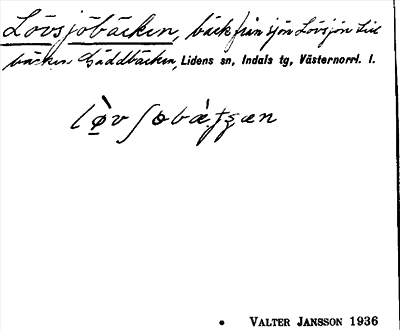 Lövsjöbäcken, bäck från sjön Lövsjön till
bäcken Gäddbäcken, Lidens sn, Indals tg, Västernorrl. l.
VALTER JANSSON 1936